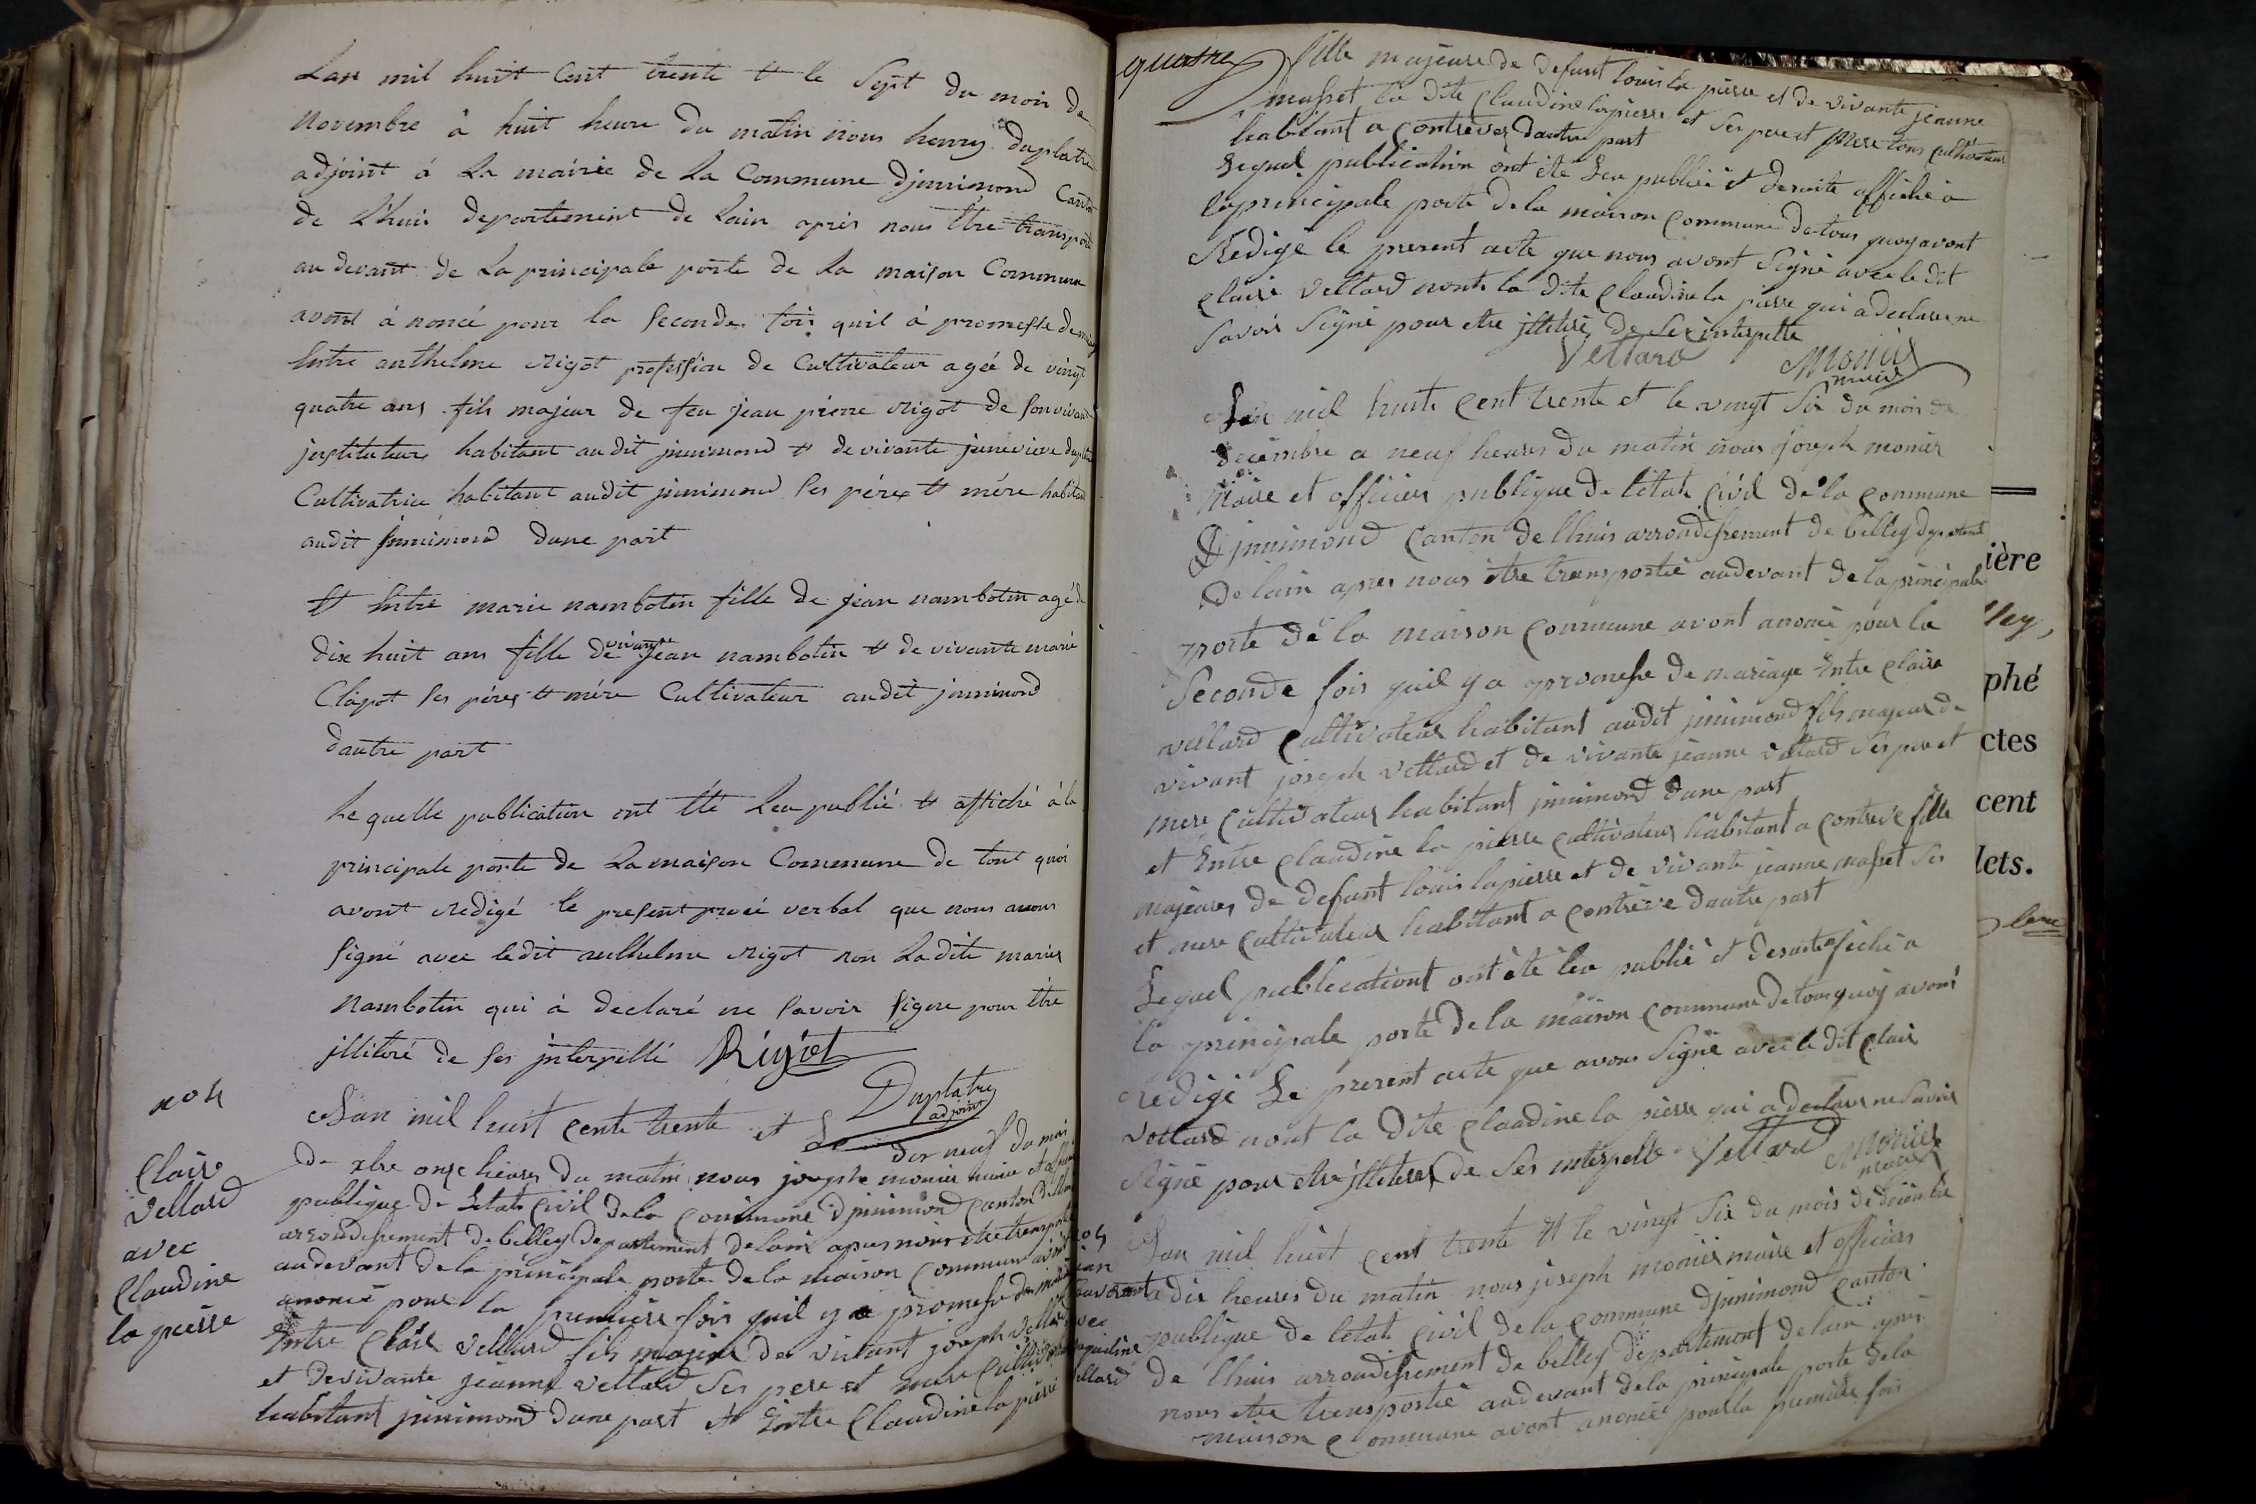 Lan mil huit Cent trente & le Sept du mois de
Novembre à huit heure du matin nous henry Duplatre
adjoint á La mairie de La Commune djnnimond Canton
de Lhuis departement de Lain après nous être transporté
au devant de La principale porte de La maison Commune
avont á noncé pour la Seconde fois quil á promesse de
Entre anthelme Rigot profession de Cultivateur agée de vingt
quatre ans fils majeur de feu jean pierre Rigot de Son vivant
jnstituteur habitant au dit jnnimond & de vivante jenevieve
Cultivatrice habitant audit jnnimond Ses pére & mére habitant
audit jnnimond dune part
& Entre marie nambotin fille de jean nambotin agé de
dix huit ans fille de vivant jean nambotin & de vivante marie
Clapot Ses pére & mére Cultivateur audit jnnimond
dautre part
Le quelle publication ont été Leu publié & affiché á la
principale porte de La maison Commune de tout quoi
avont Redigé le present procé verbal que nous avons
Signé avec ledit anthelme Rigot non La dite marie
Nambotin qui à declaré ne Savoir Signe pour être
jllitéré de Ses jnterpillé Rigot
Duplatre
adjoint
no 4
Claire
Vettard
avec
Claudine
la pierre
Lan mil huit Cent trente et Le dix neuf du mois
de xbre onze heures du matin nous joseph monier maire et
publique de Letat Civil de la Commune djnnimond Canton de
arrondissement de belley Departement delain apres nous etre transporté
au devant de la principale porte de la maison Commune avont
anoncé pour la premiere fois quil y a promesse de
Entre Claire Vettard fils majeur de vivant joseph Vettard
et de vivante jeanne Vettard Ses pere et mere
habitant jnnimond dune part et Entre Claudine la pierre
quatre
fille majeure de defunt louis la pierre et de vivante jeanne
masset la dite Claudine lapierre et Ses pere et mere tous Cultivateur
habitant a Contrevoz dautre part
Lequel publication ont été Leu publié et desuite affiché a
la principale porte de la maison Commune de tous quoy avont
Redigé le present acte que nous avont Signé avec le dit
Claire Vettard nont la dite Claudine la pierre qui a declare ne
Savoir Signé pour etre jlliteré de Ses interpelle
Vettard Monier
maire
Lan mil huit Cent trente et le vingt Six du mois de
decembre a neuf heures du matin nous joseph monier
Maire et officier publique de letat Civil de la Commune
Djnnimond Canton de lhuis arrondissement de belley departement
Delain apres nous etre transportié audevant de la principale
porte de la maison Commune avont anoncé pour la
Seconde fois quil y a promesse de mariage Entre Claire
vettard Cultivateur habitant audit jnnimond fils majeur de
vivant joseph Vettard et de vivante jeanne Vettard Ses pere et
mere Cultivateur habitant jnnimond dune part
et Entre Claudine la pierre Cultivateur habitant a Contreve fille
majeure de defunt louis lapierre et de vivante jeanne masset Ses
et mere Cultivateur habitant a Contreve dautre part
Lequel publicationt ont été leu publié et desuite afiché a
la principale porte de la maison Commune de tous quoy avont
Redigé Le present acte que avons Signé avec le dit Clair
Vettard nont la Dite Claudine la pierre qui a declare ne Savoir
Signé pour etre jlliteré de Ses interpelle Vettard Monier
maire
Lan mil huit Cent trente & le vingt Six du mois de decembre
a dix heures du matin nous joseph monier maire et officier
publique de letat Civil de la Commune djnnimond Canton
de lhuis arrondissement de belley departement delain apres
nous etre transportié audevant de la principale porte de la
maison Commune avont anoncé pour la premiere fois
ière
phé
ctes
cent
lets.